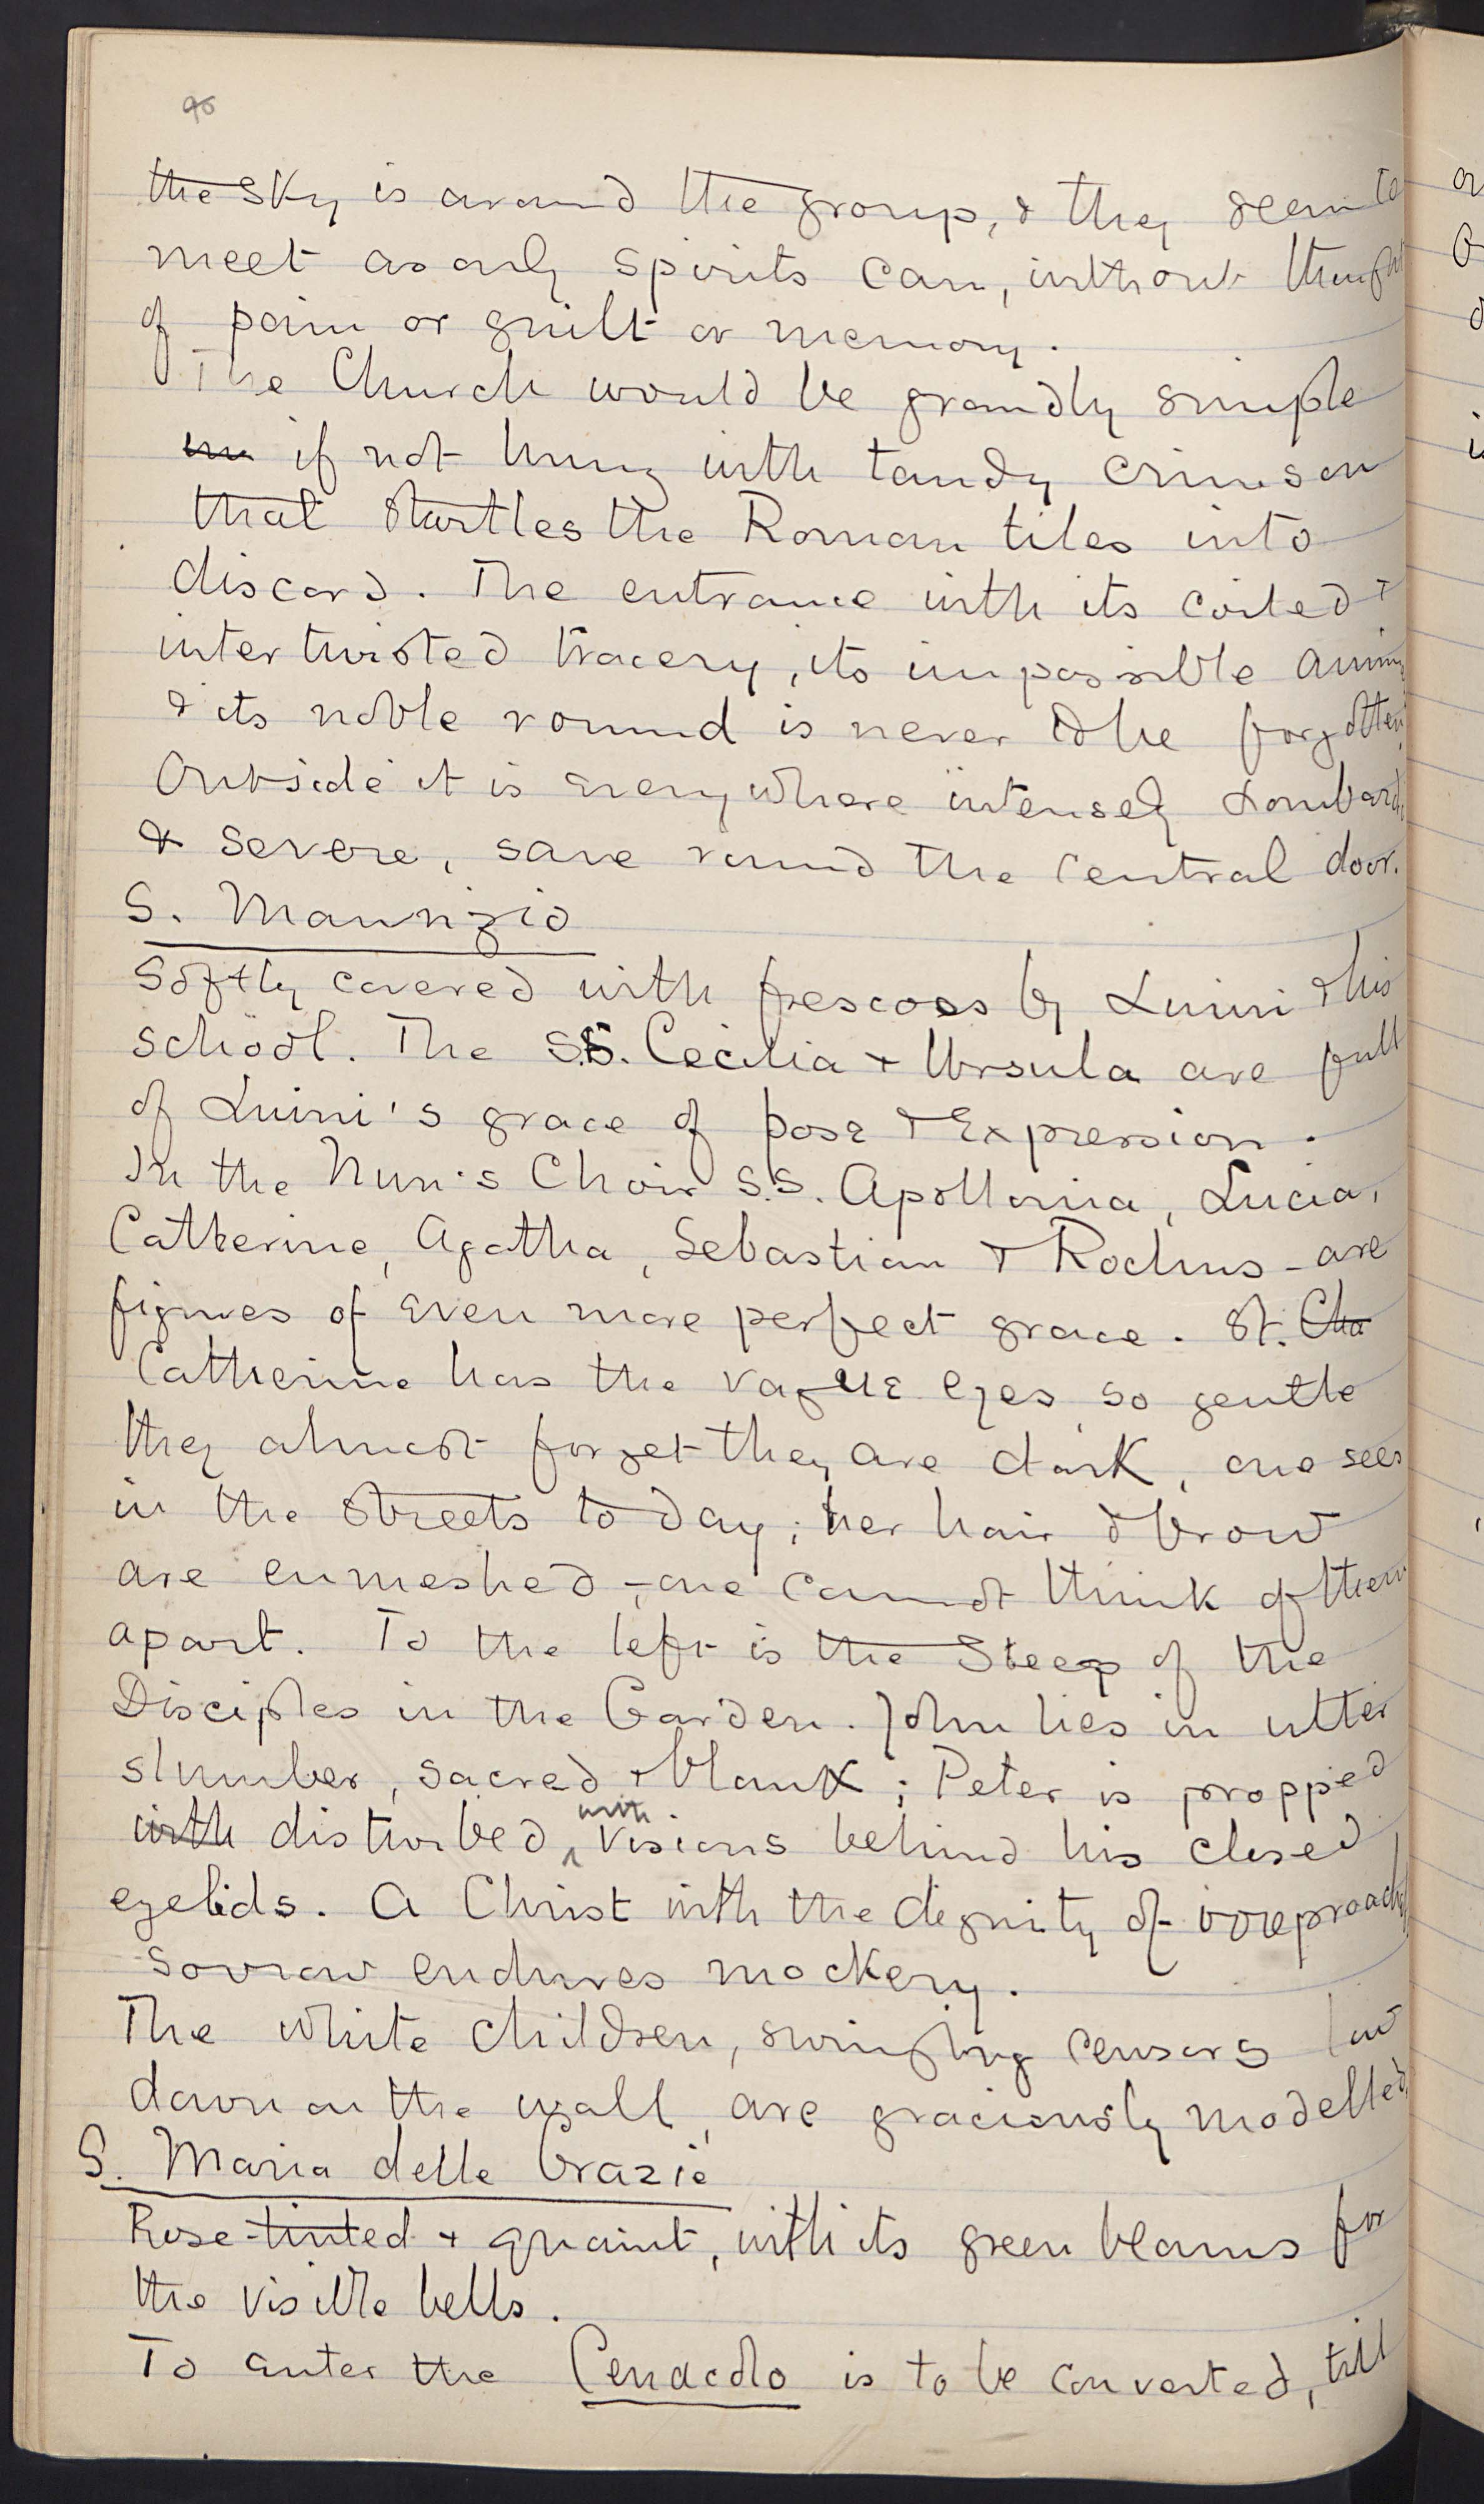 96
the sky is around the group, & they seem to
meet as only spirits can, without thought
of pain or guilt or memory.
The Church would be grandly simple
if not hung with tawdry crimson
that startles the Roman tiles into
discord. The entrance with its coiled &
intertwisted tracery, its impossible
& its noble round is never to be forgotten.
Outside it is everywhere intensely Lombard,
& severe, save round the central door.
S. Maurizio
Softly covered with frescoes by Luini & his
school. The SS. Cecilia & Ursula are full
of Luini's grace of pose & Expression.
In the Nun's Choir S.S. Apollonia, Lucia,
Catherine, Agatha, Sebastian & Rochus - are
figures of even more perfect grace. St. Cha
Catherine has the vague eyes, so gentle
they almost forget they are dark, one sees
in the streets today; her hair & brow
are enmeshed, - one cannot think of them
apart. To the left is the Sleep of the
Disciples in the Garden. John lies in utter
slumber, sacred & blank; Peter is propped
with disturbed, with visions behind his closed
eyelids. A Christ with the dignity of
sorrow endures mockery.
The white children, swinging censers low
down on the wall, are graciously modelled
S. Maria delle Grazie
Rose-tinted & quaint, with its green beams for
the visible bells.
To enter the Cenacolo is to be converted, till